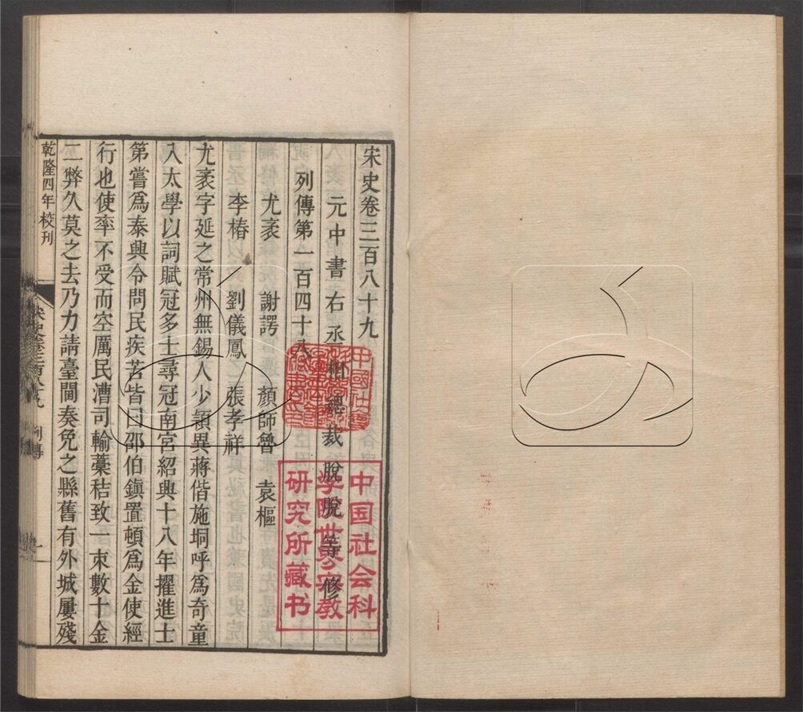 宋史卷三百八十九
元中書右丞相總裁脫脫等修
列傳第一百四十八
尤袤 謝諤 顏師魯 袁樞
李椿 劉儀鳳 張孝祥
尤袤字延之常州無錫人少穎異蔣偕施坰呼爲奇童
入太學以詞賦冠多士尋冠南宮紹興十八年擢進士
第嘗爲泰興令問民疾苦皆曰邵伯鎮置頓爲金使經
行也使率不受而空厲民漕司輸藁秸致一束數十金
二弊久莫之去乃力請臺閫奏免之縣舊有外城屢殘
乾隆四年校刊
宋史卷三百八十九 列傳 一
中国社会科
学院世界宗教
研究所藏书
中國社會